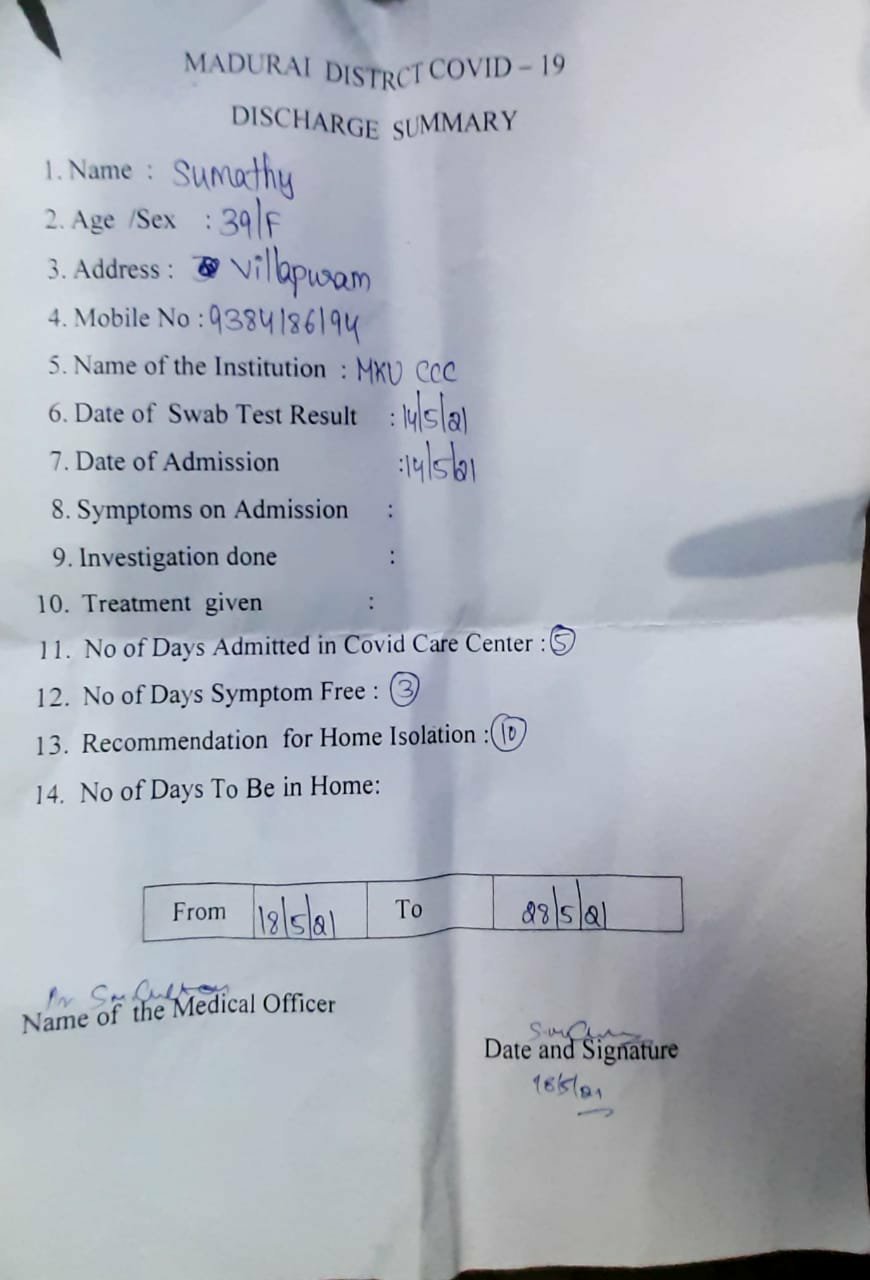 MADURAI DISTRCT COVID – 19
DISCHARGE SUMMARY
1. Name : Sumathy
2. Age /Sex : 39/F
3. Address : Villapuram
4. Mobile No : 9384186194
5. Name of the Institution : MKU CCC
6. Date of Swab Test Result : 14/5/21
7. Date of Admission :14/5/21
8. Symptoms on Admission :
9. Investigation done :
10. Treatment given :
11. No of Days Admitted in Covid Care Center : 5
12. No of Days Symptom Free : 3
13. Recommendation for Home Isolation : 10
14. No of Days To Be in Home:
From 18/5/21 To 28/5/21
Name of the Medical Officer
Date and Signature
18/5/21